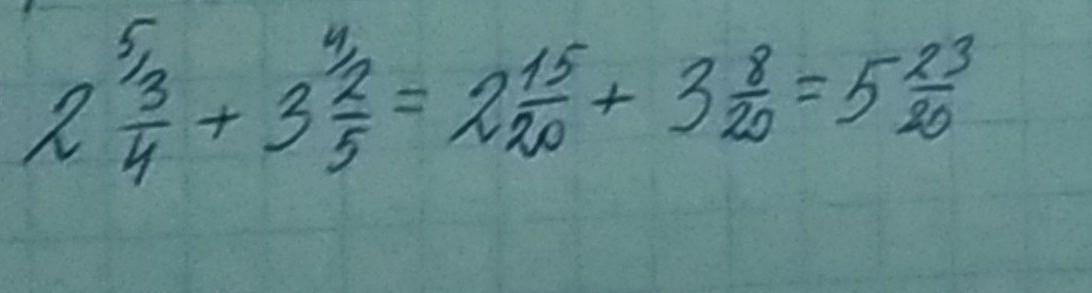 2 ⁵⁄3/4 + 3 ⁴⁄2/5 = 2 15/20 + 3 8/20 = 5 23/20